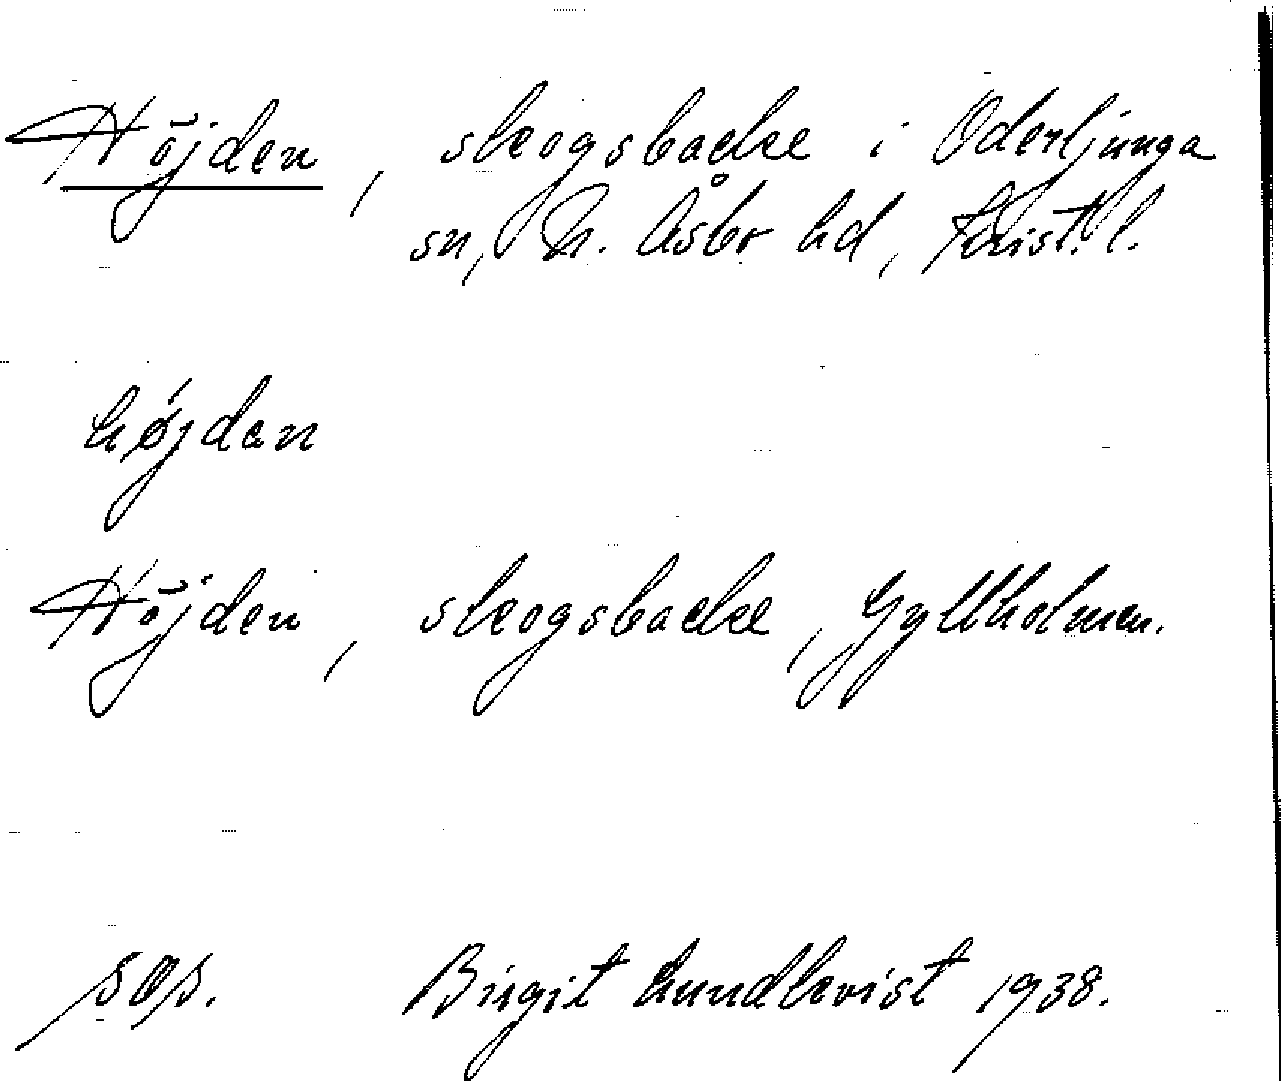 Höjden, skogsbacke i Oderljunga
sn, N. Åsbo hd, Krist. l.
højdan
Höjden, skogsbacke, Gyllholmen.
sas.
Birgit Lundkvist 1938.